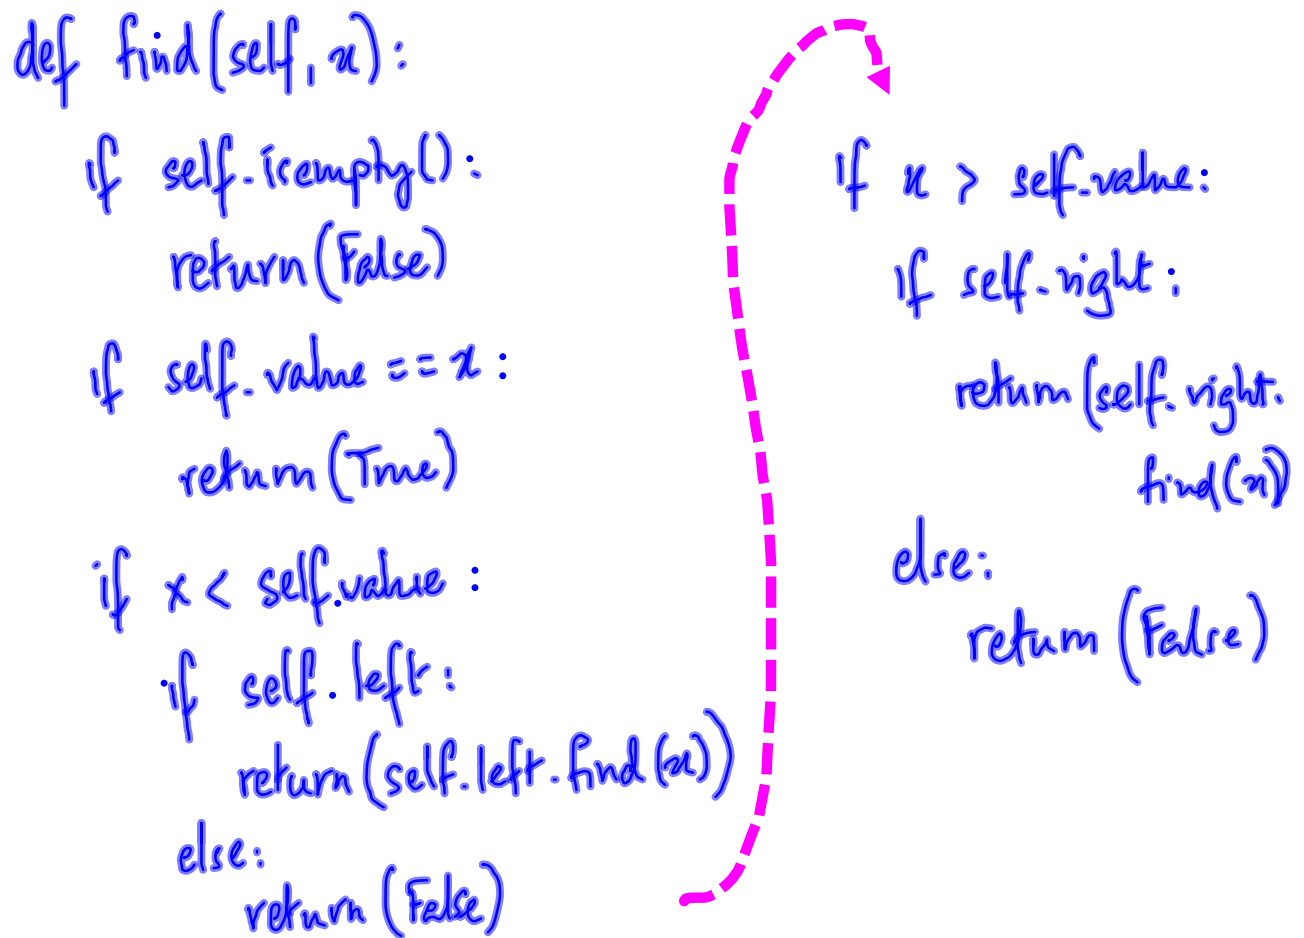 def find(self, x):
if self.isempty():
return(False)
if self.value == x:
return(True)
if x < self.value:
if self.left:
return(self.left.find(x))
else:
return(False)
if x > self.value:
if self.right:
return(self.right.
find(x))
else:
return(False)